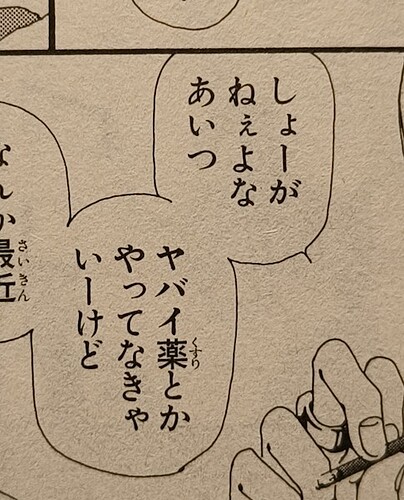 しょーが
ねぇよな
あいつ
ヤバイ薬とか
くすり
やってなきゃ
いーけど
なんか最近
さいきん